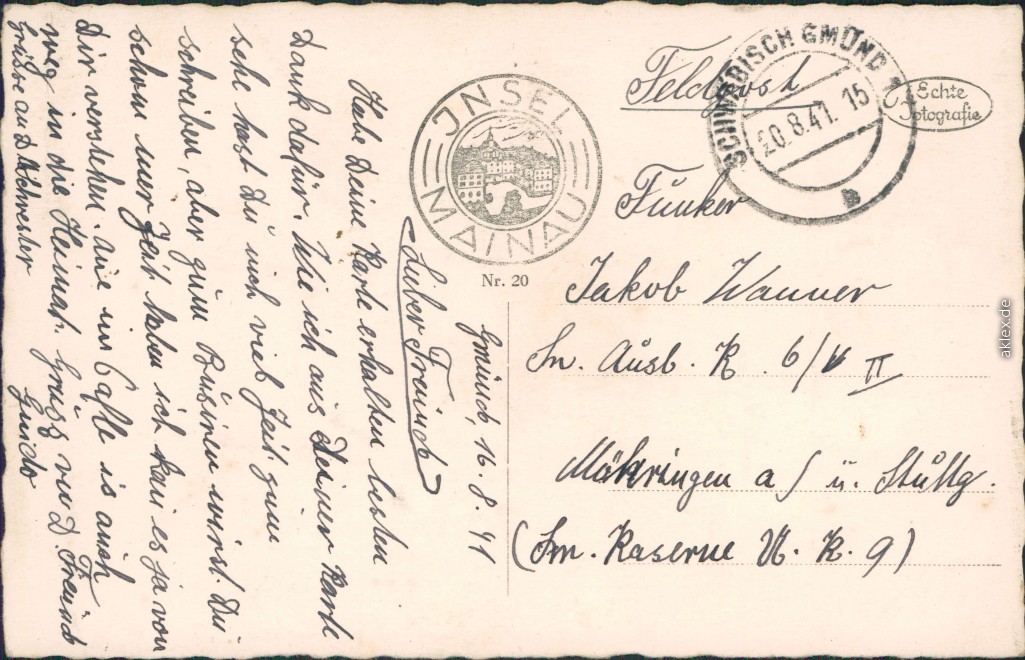 Gmünd, 16. 8. 41
Lieber Freund
Habe Deine Karte erhalten besten
Dank dafür. Wie ich aus Deiner Karte
sehe hast Du noch viel Zeit zum
schreiben, aber zum wirst. Du
schon mer Zeit haben ich kan es ja von
Dir verstehen. Café is auch
weg in die Heimat. Grüß von D. Freund
Grüsse an D Schwester Guido
JNSEL
MAINAU
Nr. 20
Feldpost
SCHWÄBISCH GMÜND 1
20.8.41. 15
B
Echte
Fotografie
Funker
Jakob Wanner
Sn. Ausb. K. 6/V II
Möhringen a/ ü. Stuttg.
(Fm. Kaserne U. K. 9)
aklex.de